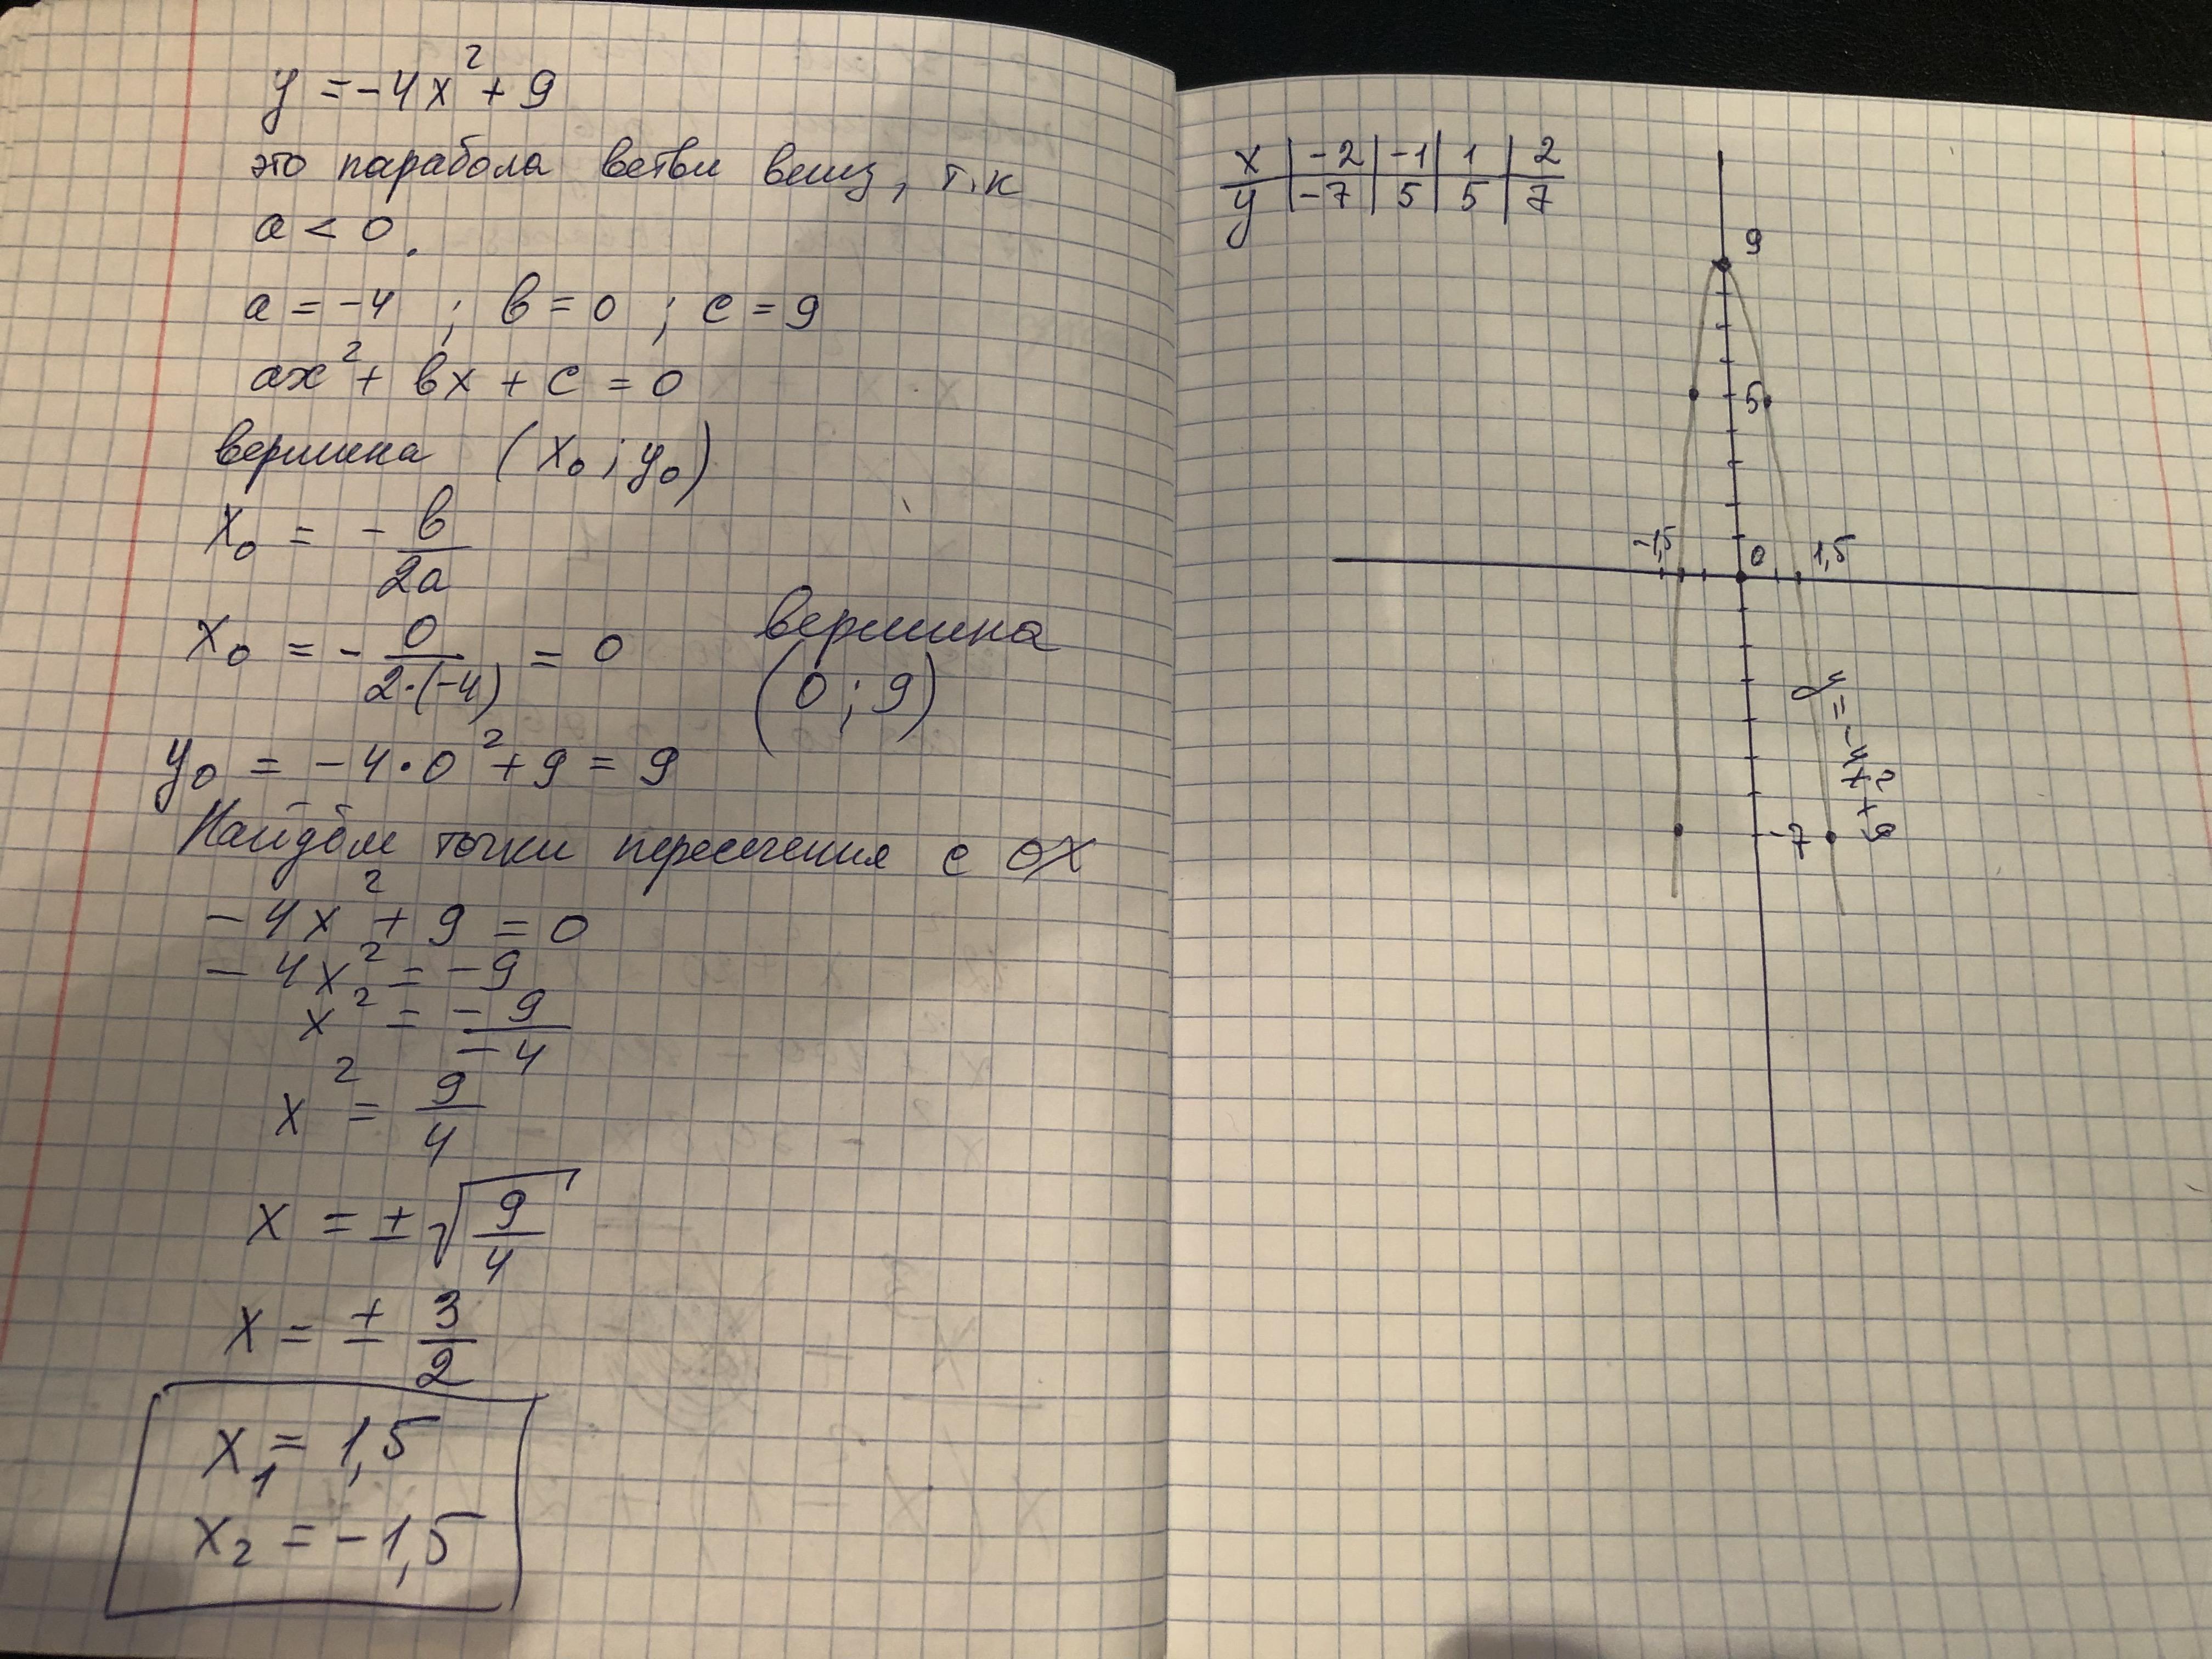 y = -4x² + 9
это парабола ветви вниз, т.к
a < 0.
a = -4 ; в = 0 ; c = 9
ax² + вx + c = 0
вершина (x₀ ; y₀)
x₀ = - в/2a
x₀ = - 0/2·(-4) = 0
вершина
(0 ; 9)
y₀ = -4·0² + 9 = 9
Найдём точки пересечения с OX
-4x² + 9 = 0
-4x² = -9
x² = -9/-4
x² = 9/4
x = ± √9/4
x = ± 3/2
x₁ = 1,5
x₂ = -1,5
x | -2 | -1 | 1 | 2
y | -7 | 5 | 5 | 7
9
5
-1,5
0
1,5
y = -4x² + 9
-7